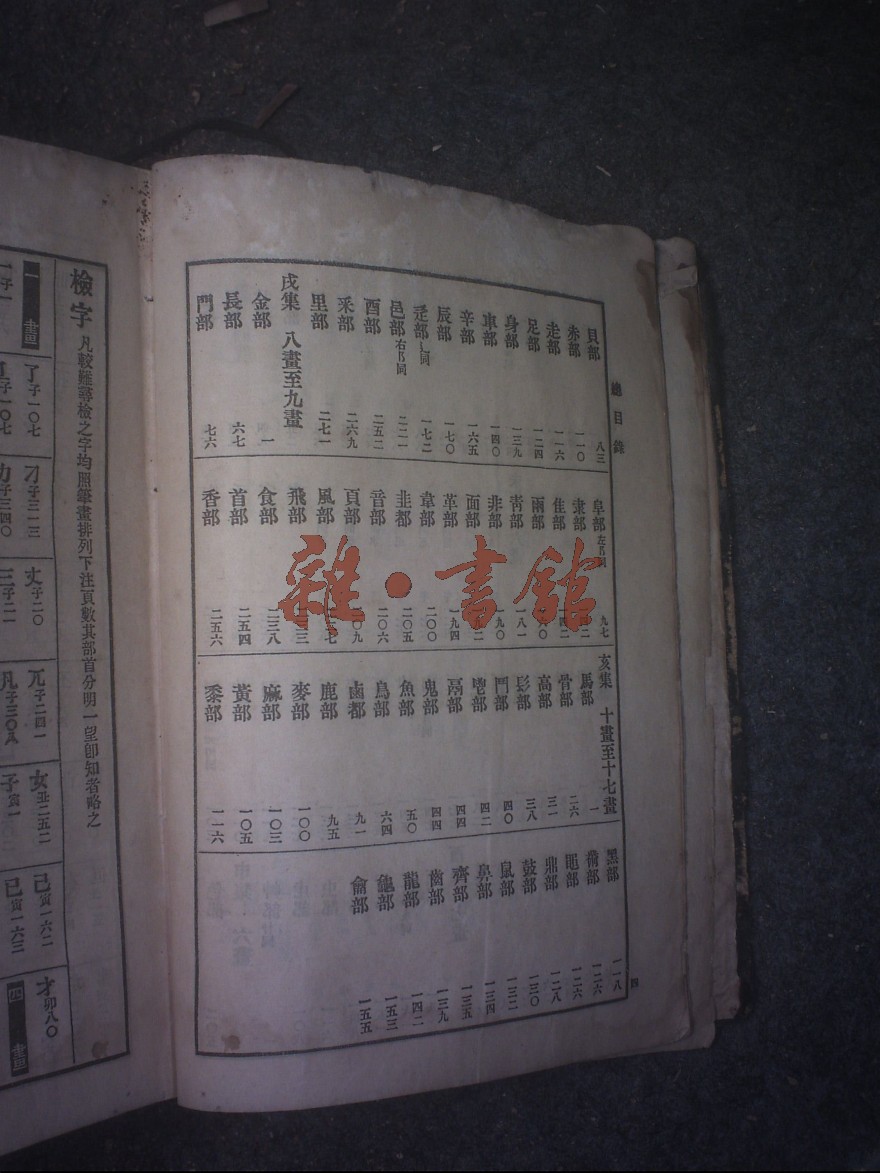 總目錄
貝部 八三
赤部 一一〇
走部 一一六
足部 一二四
身部 一三九
車部 一四〇
辛部 一六五
辰部 一七〇
辵部辶同 一七二
邑部右阝同 二二一
酉部 二五二
釆部 二六九
里部 二七一
戌集 八畫至九畫
金部 一
長部 六七
門部 七六
阜部左阝同 九七
隶部
隹部
雨部
靑部 一八一
非部
面部
革部 一九四
韋部 二〇〇
韭部 二〇五
音部 二〇六
頁部
風部
飛部
食部 二三八
首部 二五四
香部 二五六
亥集 十畫至十七畫
馬部 一
骨部 二六
高部 三一
髟部 三八
鬥部 四〇
鬯部 四二
鬲部 四四
鬼部 四四
魚部 五〇
鳥部 六四
鹵部 九一
鹿部 九五
麥部 一〇〇
麻部 一〇三
黃部 一〇五
黍部 一一六
黑部 一一八
黹部 一二六
黽部 一二六
鼎部 一二八
鼓部 一三〇
鼠部 一三二
鼻部 一三四
齊部 一三五
齒部 一三九
龍部 一四二
龜部 一五三
龠部 一五五
四
雜·書館
檢字 凡較難尋檢之字均照筆畫排列下注頁數其部首分明一望卽知者略之
一畫
了子一〇七
刁子三一三
丈子二〇
兀子二四一
女丑二五二
己寅一六二
才卯八〇
三子二一
凡子三〇八
子寅一
已寅一六三
四畫